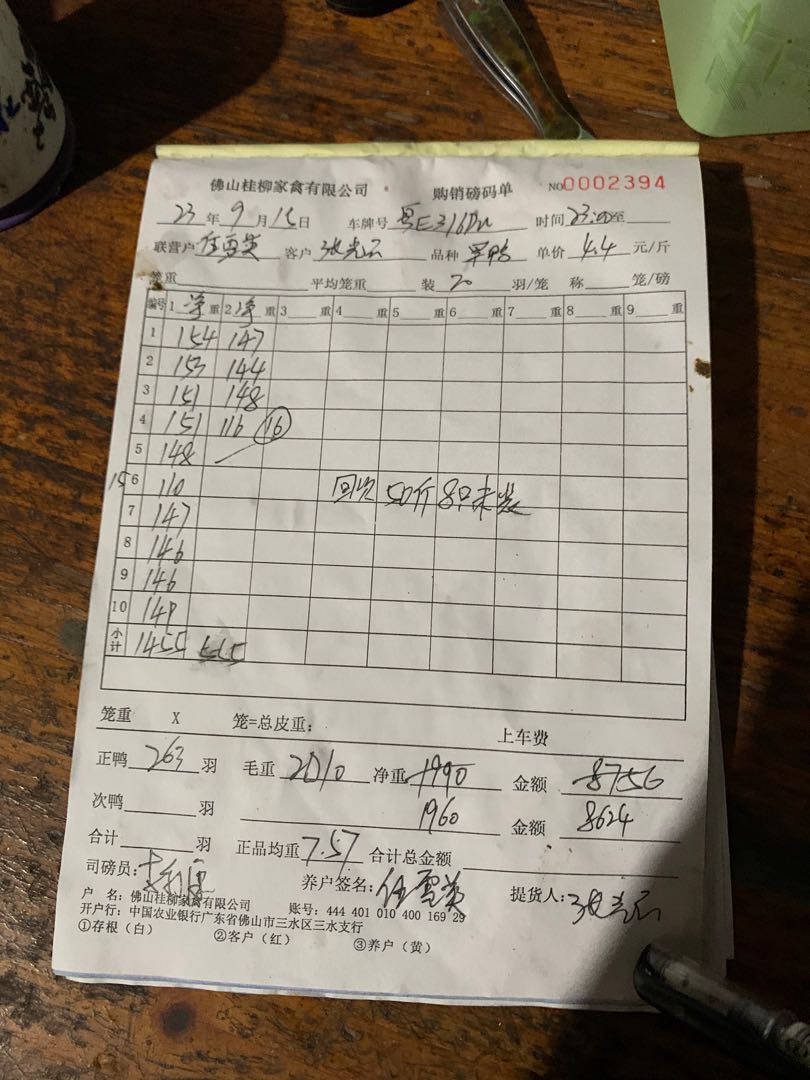 佛山桂柳家禽有限公司 购销磅码单 NO0002394
23年9月15日 车牌号 粤E316 时间23:00至
联营户 任雪英 客户 张光云 品种 单价 4.4 元/斤
笼重 平均笼重 装 20 羽/笼 称 笼/磅
编号 1 净 重 2 净 重 3 重 4 重 5 重 6 重 7 重 8 重 9 重
1 154 147
2 153 144
3 151 148
4 151 116 16
5 148
15 6 110 50斤 8只未装
7 147
8 146
9 146
10 149
小计 1455 555
笼重 X 笼=总皮重: 上车费
正鸭 263 羽 毛重 2010 净重 1990 金额 8756
次鸭 羽 1960 金额 8624
合计 羽 正品均重 7.57 合计总金额
司磅员: 养户签名: 任雪英 提货人: 张光云
户 名: 佛山桂柳家禽有限公司 账号: 444 401 010 400 169 29
开户行: 中国农业银行广东省佛山市三水区三水支行
①存根(白) ②客户(红) ③养户(黄)